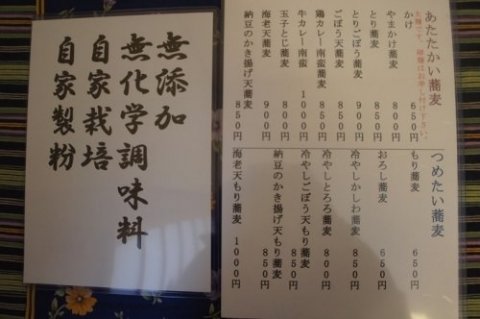 無添加
無化学調味料
自家栽培
自家製粉
あたたかい蕎麦
お申し付け下さい。
かけ 650円
やまかけ蕎麦 850円
とり蕎麦 850円
とりごぼう蕎麦 900円
ごぼう天蕎麦 850円
鶏カレー南蛮蕎麦 850円
牛カレー南蛮 1000円
玉子とじ蕎麦 800円
海老天蕎麦 900円
納豆のかき揚げ天蕎麦 850円
つめたい蕎麦
もり蕎麦 650円
おろし蕎麦 850円
冷やしかしわ蕎麦 850円
冷やしとろろ蕎麦 800円
冷やしごぼう天もり蕎麦 850円
納豆のかき揚げ天もり蕎麦 850円
海老天もり蕎麦 1000円